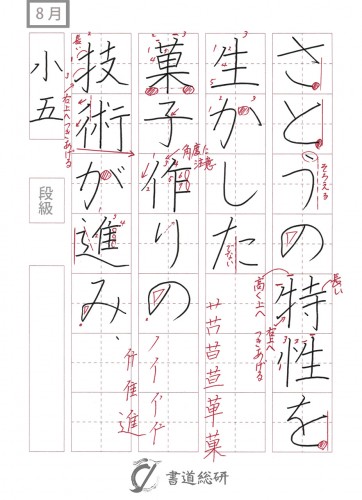 8月
さとうの特性を
そろえる
長い
高く上へ
右上へ
つきあげる
生かした
菓子作りの
角度に
注意
技術が進み、
長い
右上へつきあげる
菓
進
小五
段級
書道総研